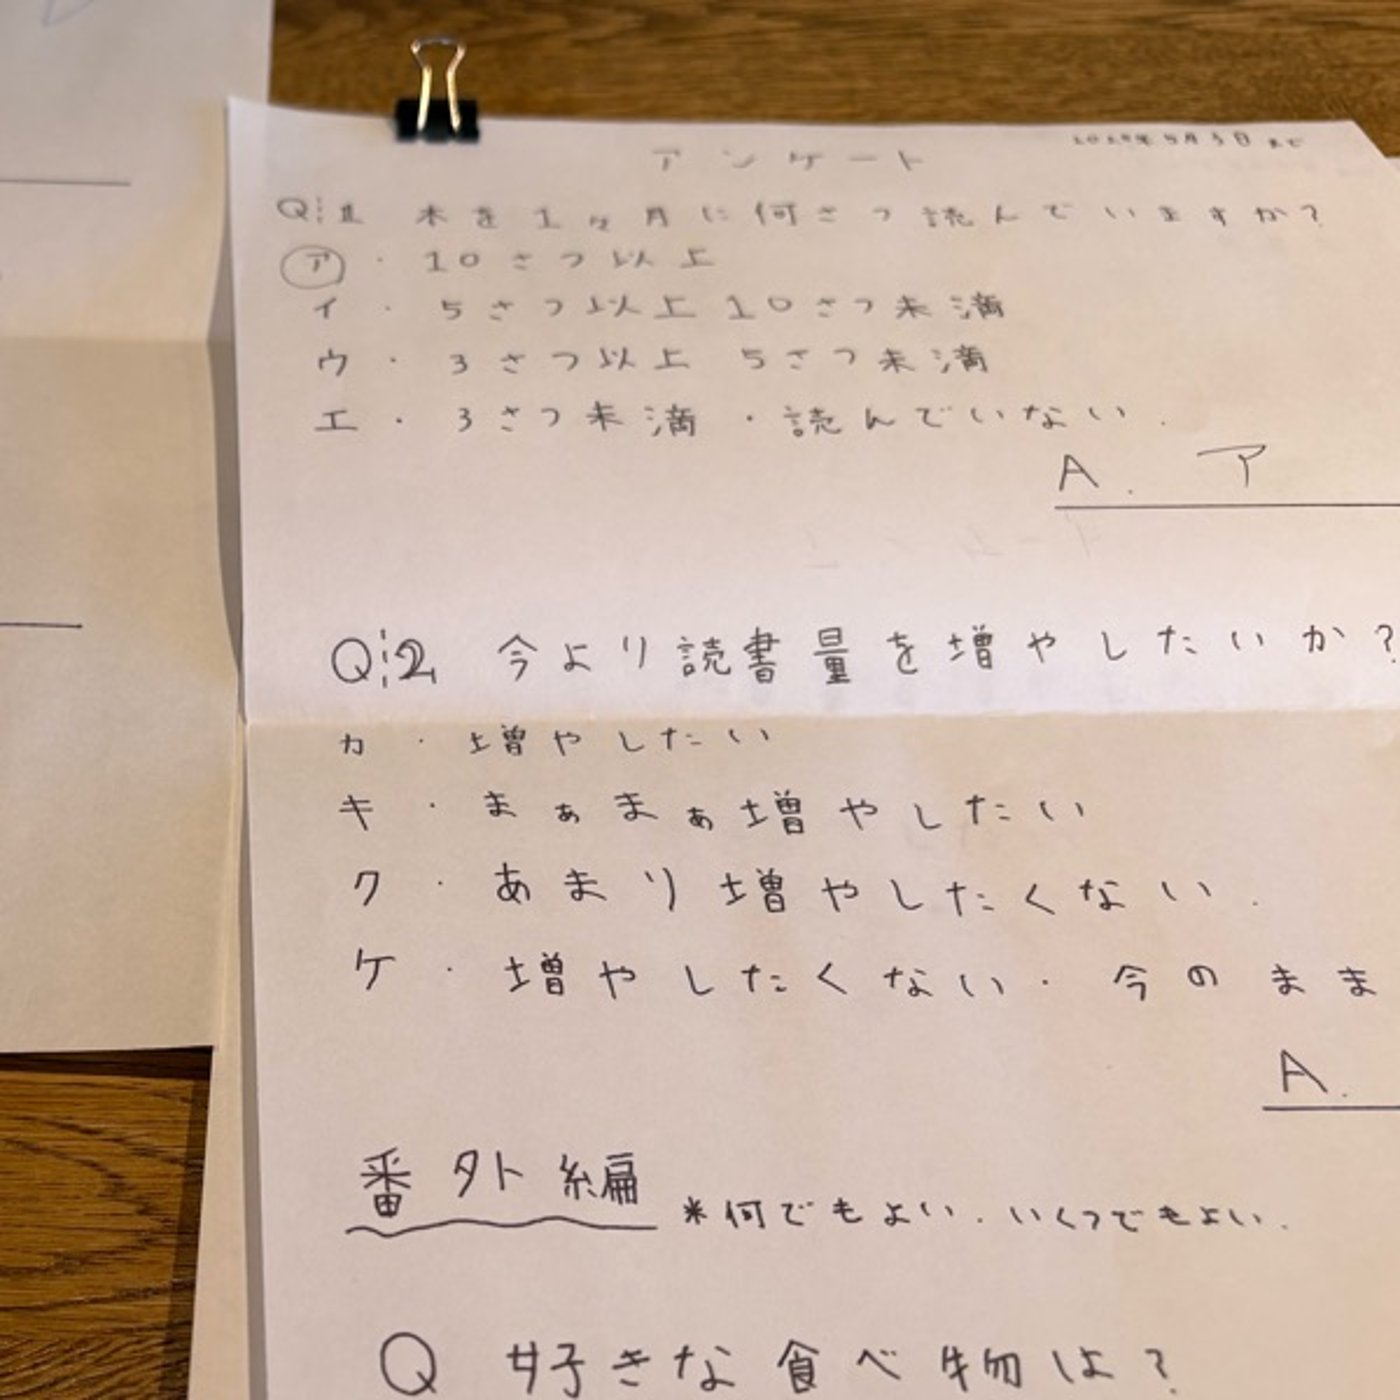 アンケート
Q:1 本を1ヶ月に何さつ読んでいますか?
ア・10さつ以上
イ・5さつ以上10さつ未満
ウ・3さつ以上 5さつ未満
エ・3さつ未満・読んでいない.
A. ア
Q:2 今より読書量を増やしたいか?
カ・増やしたい
キ・まぁまぁ増やしたい
ク・あまり増やしたくない.
ケ・増やしたくない・今のまま
A.
番外編 *何でもよい.いくつでもよい.
Q 好きな食べ物は?